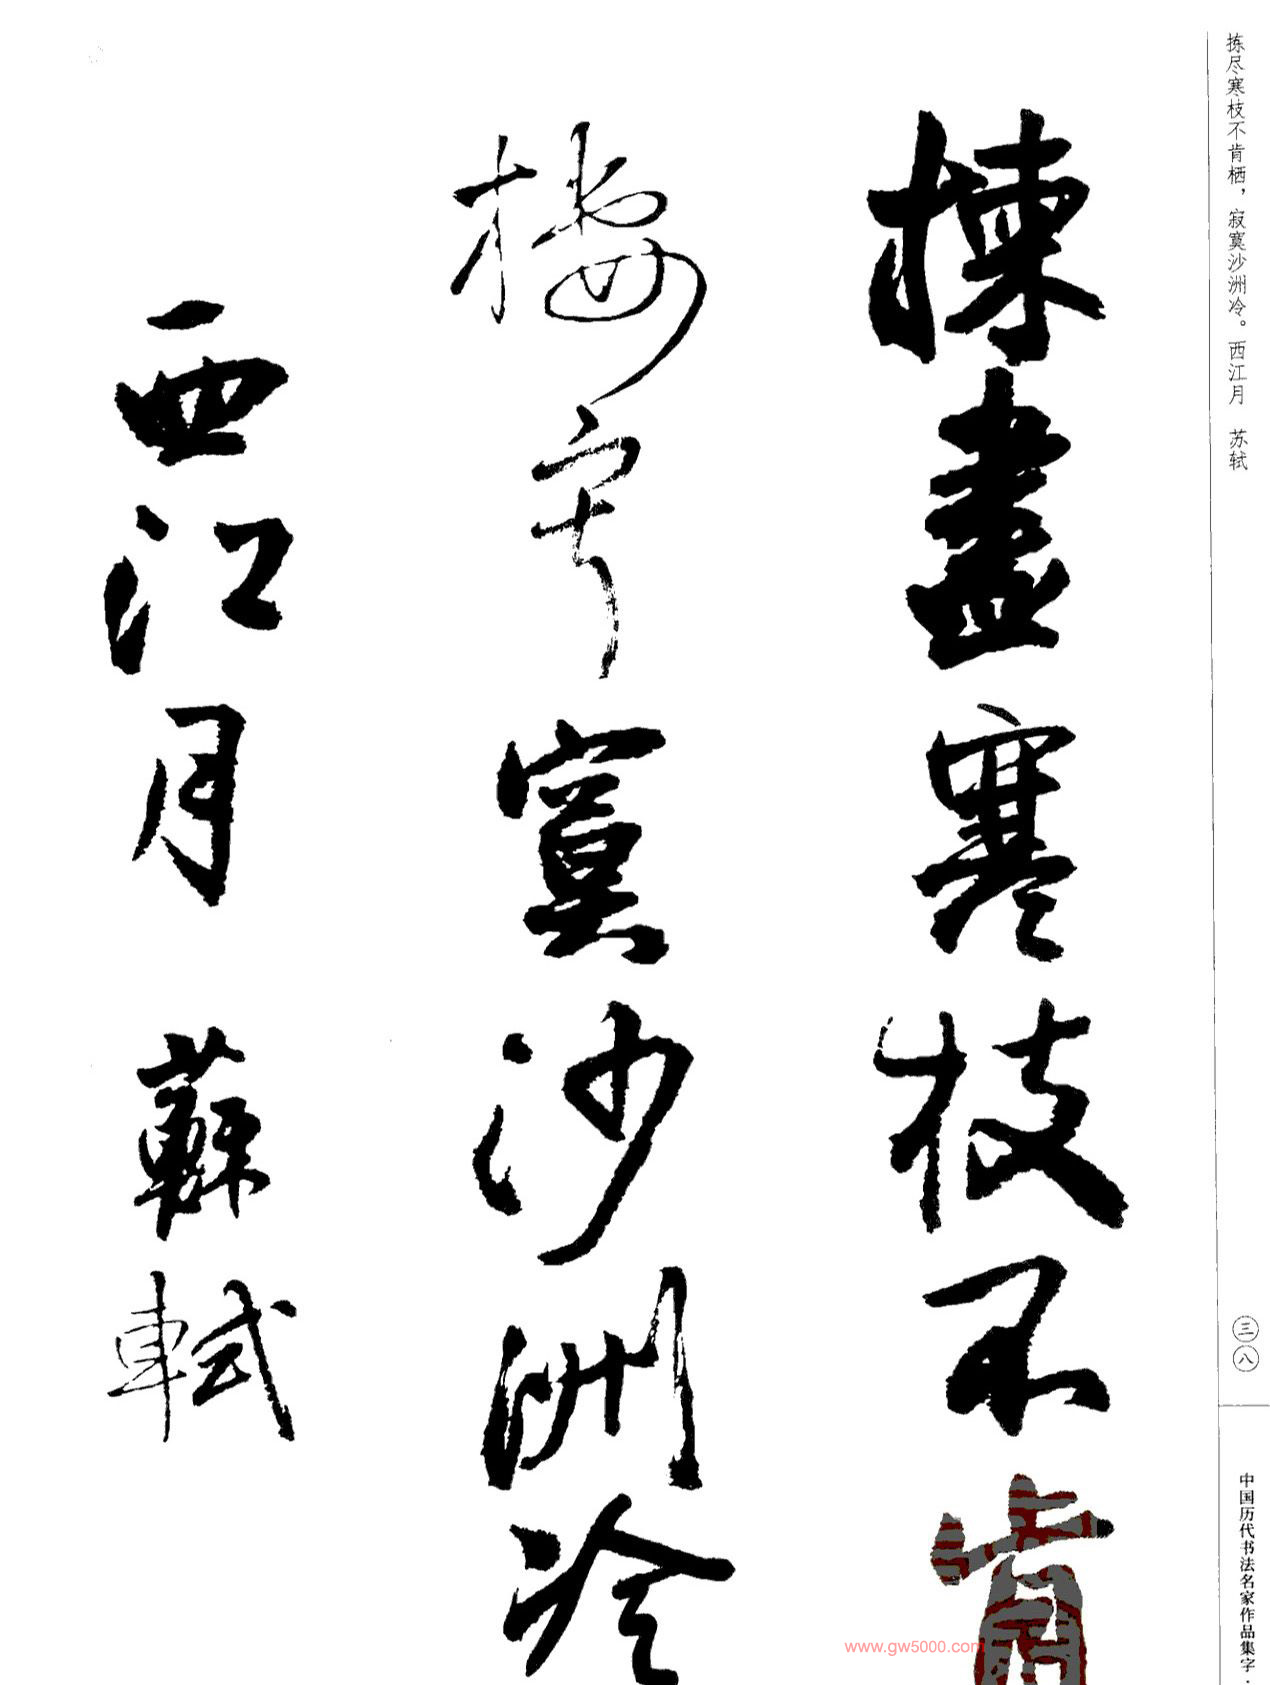 拣尽寒枝不肯栖，寂寞沙洲冷。西江月　苏轼
三八
中国历代书法名家作品集字·
揀盡寒枝不肯
棲寂寞沙洲冷
西江月 蘇軾
www.gw5000.com